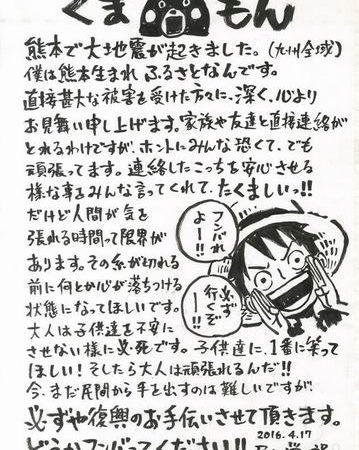 くまもん
熊本で大地震が起きました。(九州全域)
僕は熊本生まれ ふるさとなんです。
直接甚大な被害を受けた方々に、深く、心より
お見舞い申し上げます。家族や友達と直接連絡が
とれるわけですが、ホントにみんな恐くて、でも
頑張ってます。連絡したこっちを安心させる
様な事をみんな言ってくれて、たくましいっ!!
だけど人間が気を
張れる時間って限界が
あります。その糸が切れる
前に何とか心が落ちつける
状態になってほしいです。
フンバれよー!!
必ず行くぞー!!
大人は子供達を不安に
させない様に必死です。子供達に、1番に笑って
ほしい!そしたら大人は頑張れるんだ!!
今、まだ民間から手を出すのは難しいですが
必ずや復興のお手伝いさせて頂きます。
どうかフンバってください!!
2016.4.17